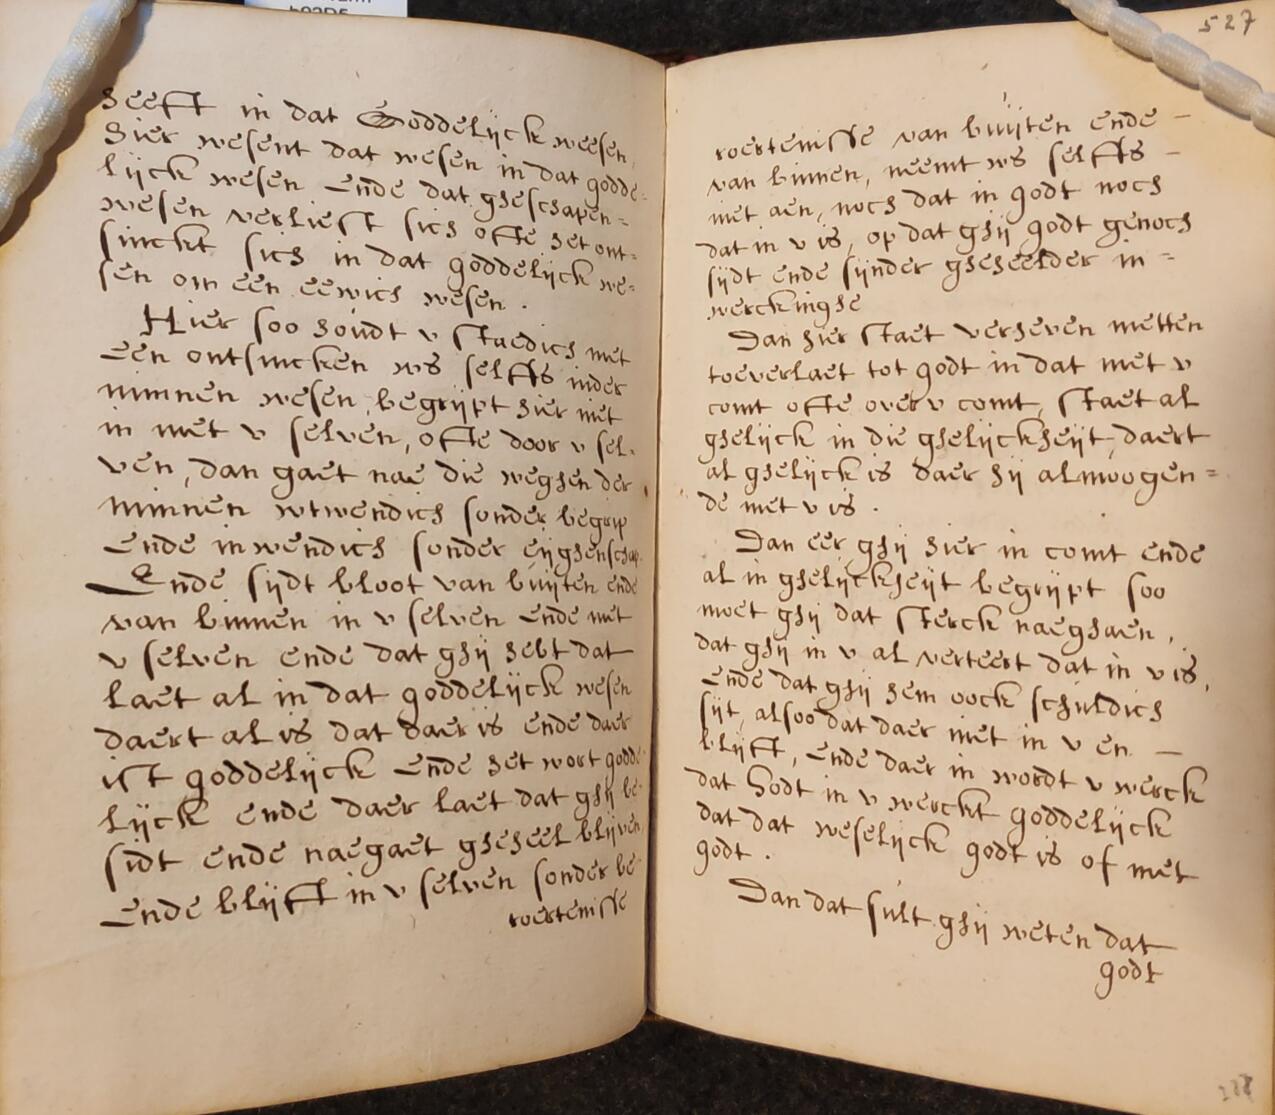 heeft in dat Goddelijck weesen,
hier wesent dat wesen in dat godde-
lijck wesen Ende dat gheschapen=
wesen verliest sich ofte het ont=
sinckt sich in dat goddelijck we=
sen om een eewich wesen.
Hier soo houdt u staedich met
Een ontsincken ws selfs inder
minnen wesen, begrijpt hier niet
in met u selven, ofte door u sel-
ven, dan gaet nae die weghen der
minnen wtwendich sonder begrip
Ende inwendich sonder eijghenschap
Ende sijdt bloot van buijten ende
van binnen in u selven ende met
u selven ende dat ghij hebt dat
laet al in dat goddelijck wesen
daert al is dat daer is ende daer
ist goddelijck Ende het wort godde
lijck ende daer laet dat ghij be-
sidt ende naegaet gheheel blijven
Ende blijft in u selven sonder be
roertenisse
527
roertenisse van buijten ende —
van binnen, neemt ws selffs —
niet aen, noch dat in godt noch
dat in u is, op dat ghij godt genoch
sijdt ende sijnder gheheelder in=
werckinghe
Dan hier staet verheven metten
toeverlaet tot godt in dat met u
comt ofte over u comt, staet al
ghelijck in die ghelijckheijt, daert
al ghelijck is daer hij almoogen=
de met u is.
Dan eer ghij hier in comt ende
al in ghelijckheijt begrijpt soo
moet ghij dat sterck naeghaen,
dat ghij in u al verteert dat in u is,
Ende dat ghij hem oock schuldich
sijt, alsoo dat daer niet in u en —
blijft, Ende daer in wordt u werck
dat Godt in u werckt goddelijck
dat dat weselijck godt is of met
godt.
Dan dat sult ghij weten dat
godt